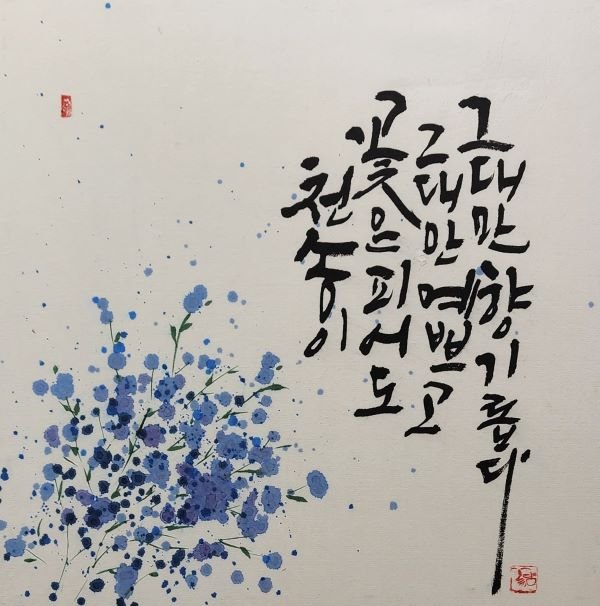 천송이
꽃은 피어도
그대만 예쁘고
그대만 향기롭다